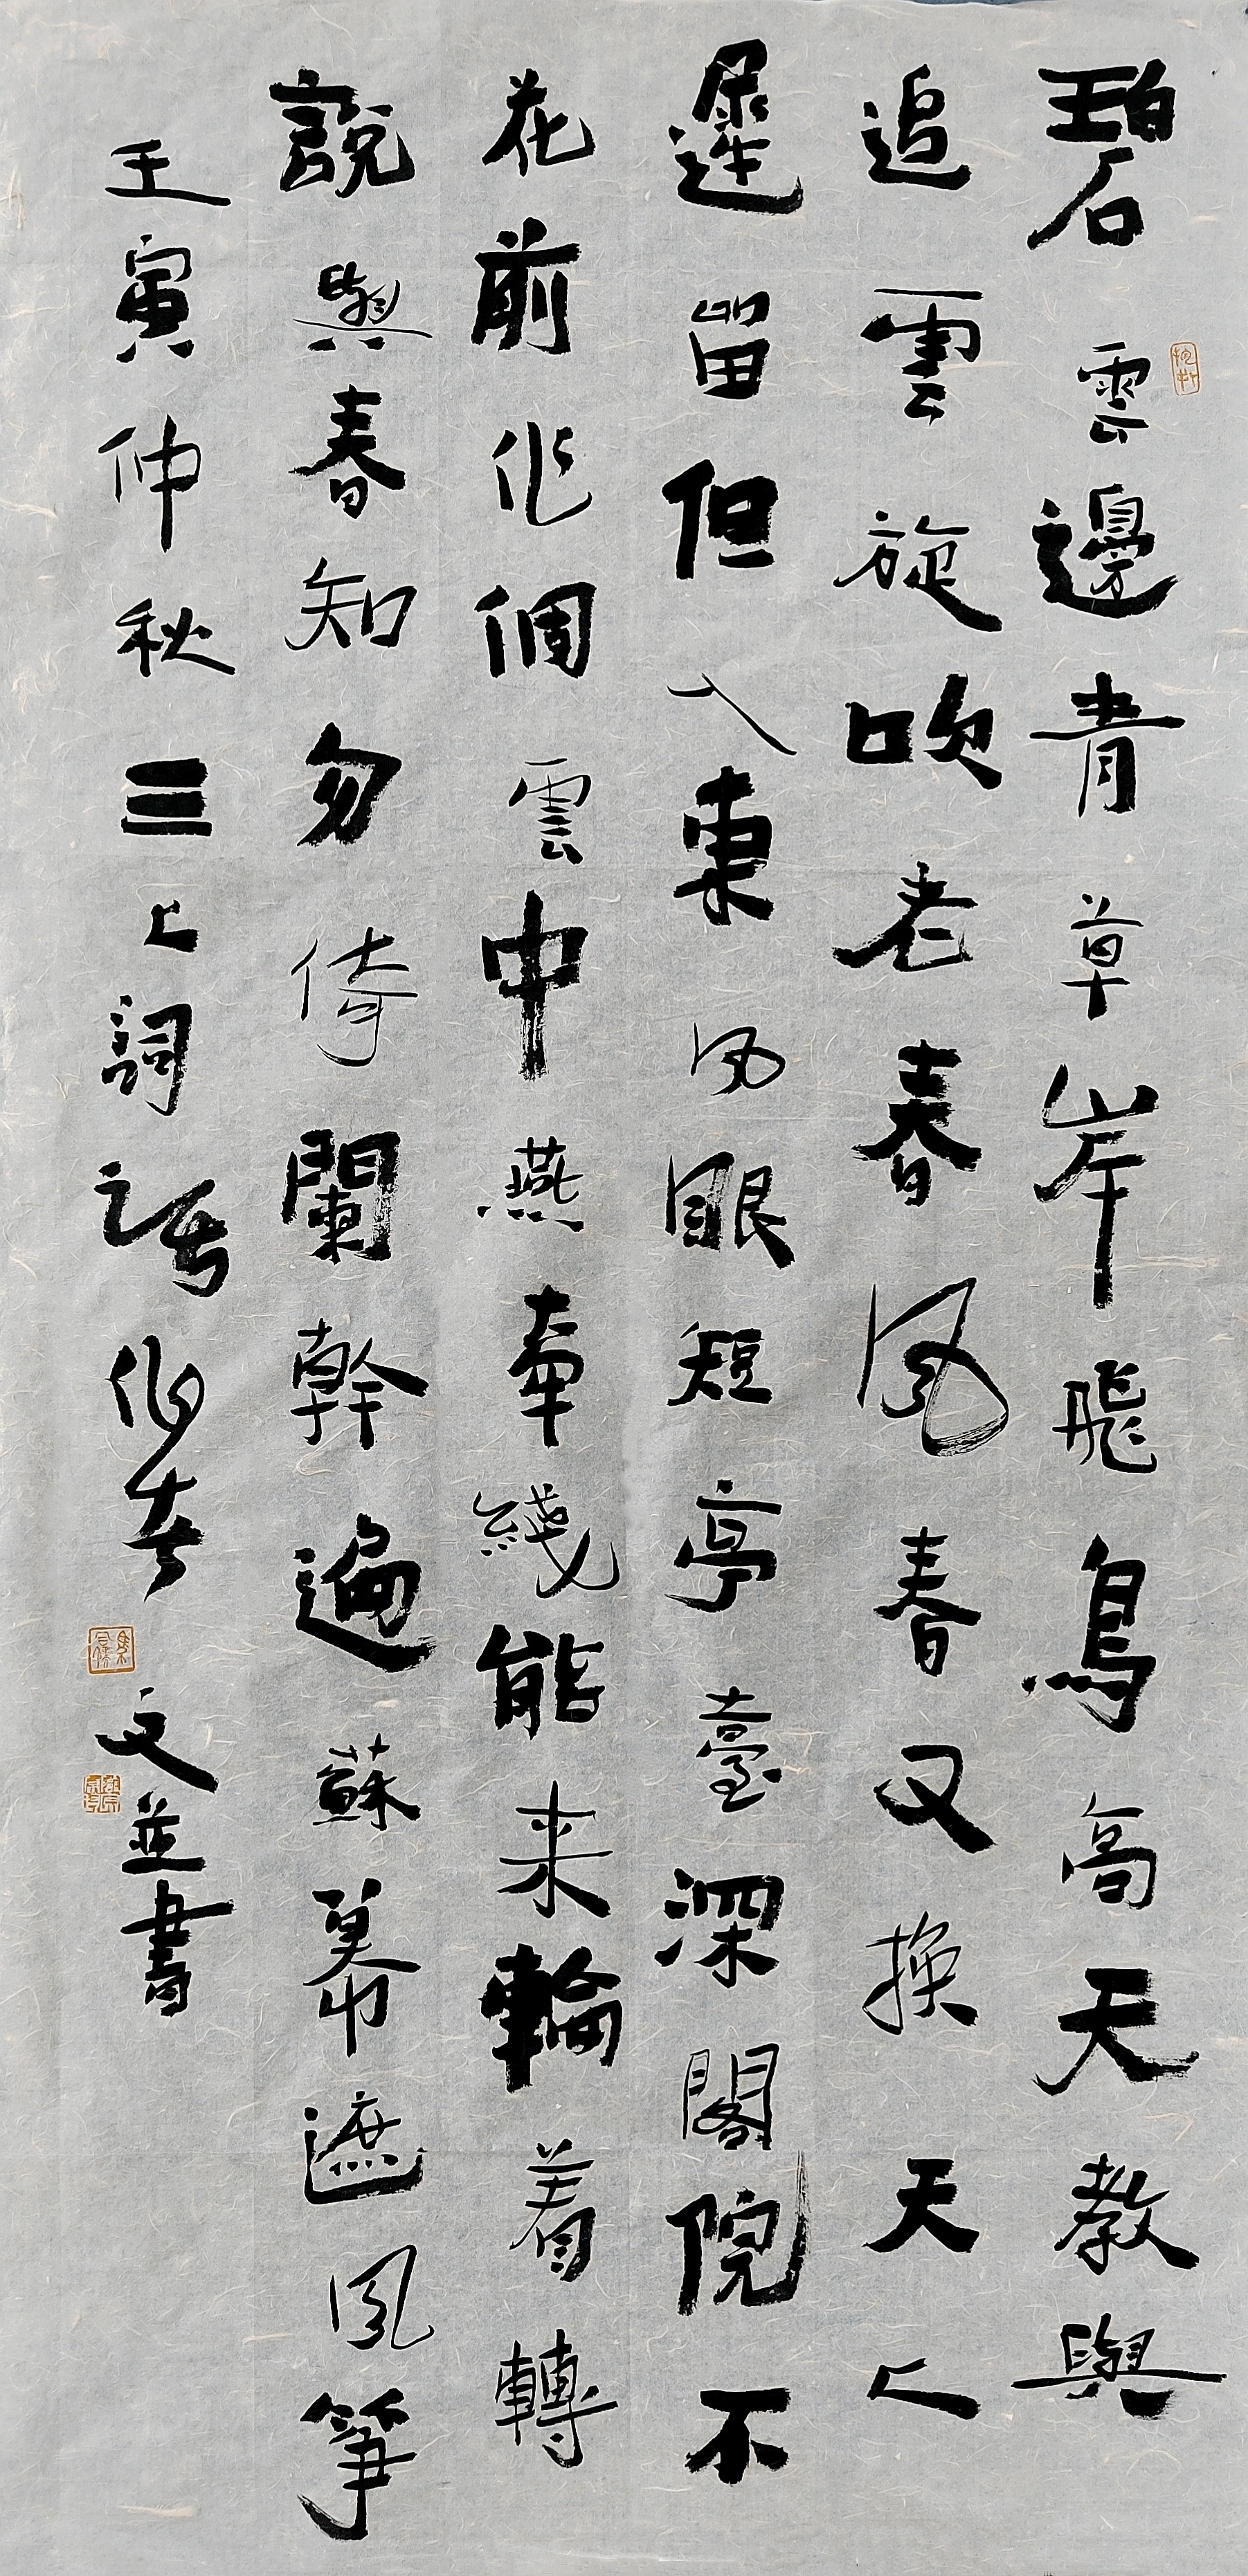 碧雲邊青草岸飛鳥高天教與
追雲旋吹老春風春又換天人
遲留但入東風眼短亭臺深閣院不
花前作個雲中燕牽綫能來輪着轉
說與春知勿倚闌幹遍蘇幕遮風箏
壬寅仲秋三上詞話作者文並書